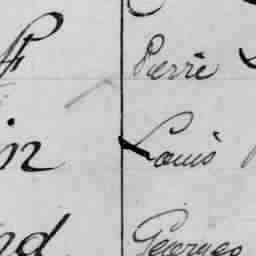 Pierre
in Louis
nd Georges